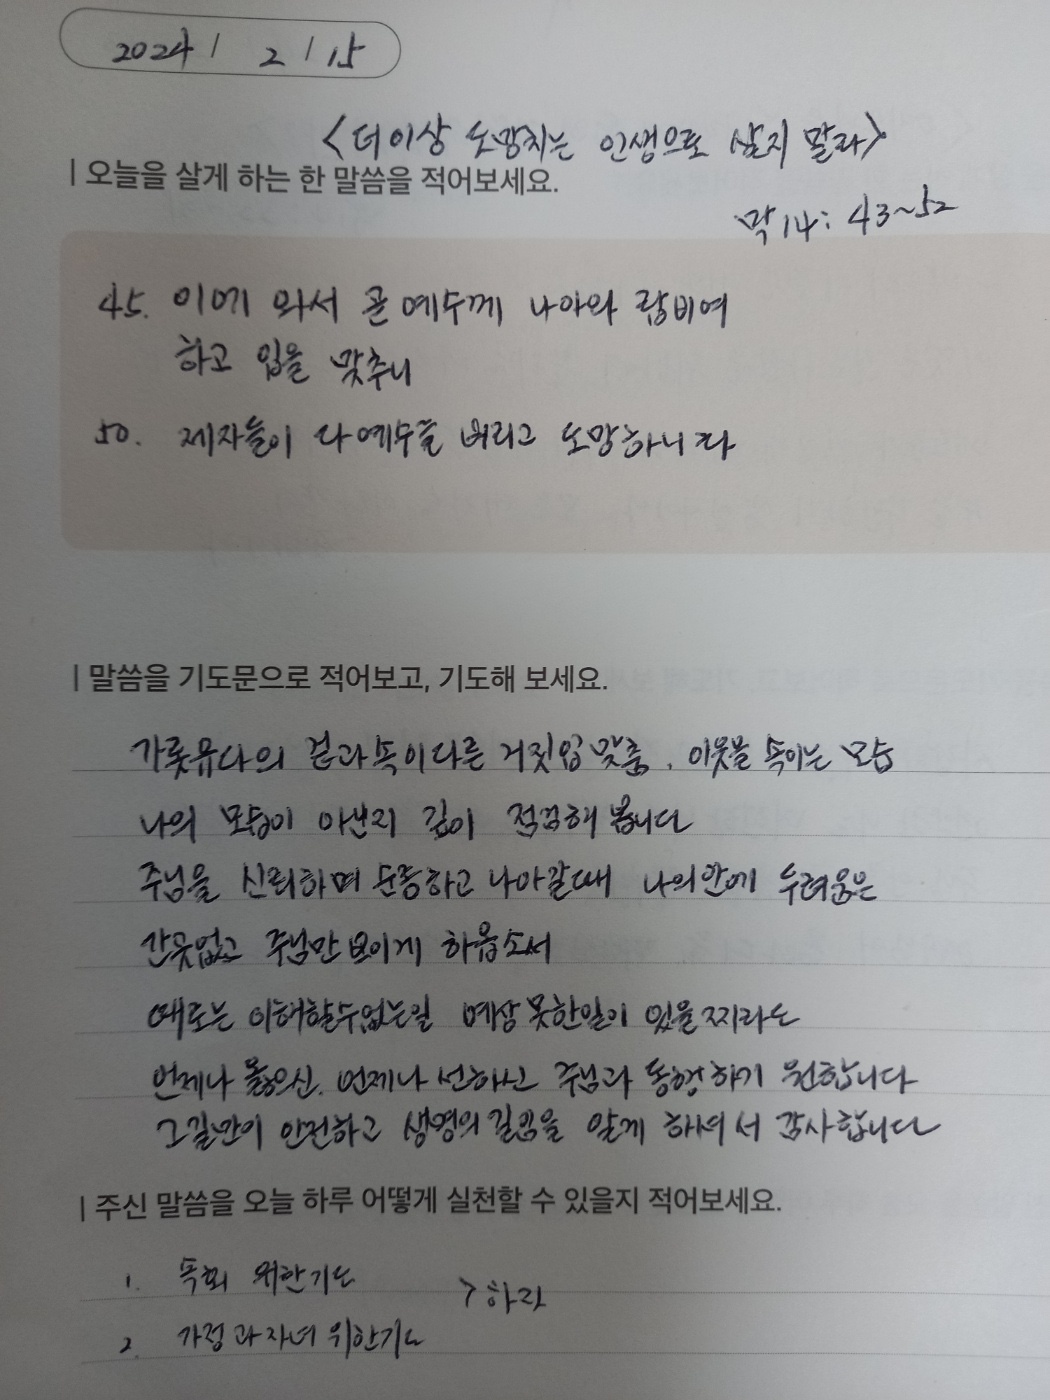 2024 / 2 / 15
<더이상 도망치는 인생으로 살지 말라>
| 오늘을 살게 하는 한 말씀을 적어보세요.
막 14: 43~52
45. 이에 와서 곧 예수께 나아와 랍비여
하고 입을 맞추니
50. 제자들이 다 예수를 버리고 도망하니라
| 말씀을 기도문으로 적어보고, 기도해 보세요.
가룟유다의 겉과 속이 다른 거짓 입맞춤, 이웃을 속이는 모습
나의 모습이 아닌지 깊이 점검해 봅니다
주님을 신뢰하며 순종하고 나아갈때 나의 안에 두려움은
간곳없고 주님만 보이게 하옵소서
때로는 이해할수없는일 예상 못한일이 있을찌라도
언제나 옳으신, 언제나 선하신 주님과 동행하기 원합니다
그길만이 안전하고 생명의 길임을 알게 하셔서 감사합니다
| 주신 말씀을 오늘 하루 어떻게 실천할 수 있을지 적어보세요.
1. 속회 위한기도
> 하라
2. 가정과 자녀 위한기도